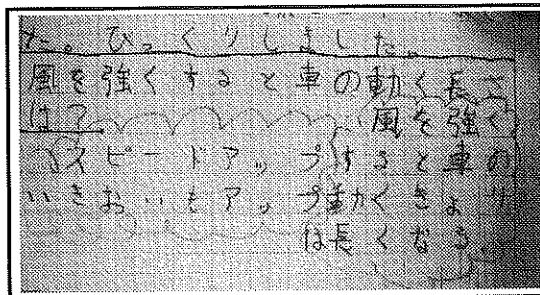 た。びっくりしました。
風を強くすると車の動く長さ
は？
スピードアップ
いきおいもアップ
風を強く
すると車の
動くきょり
は長くなる。